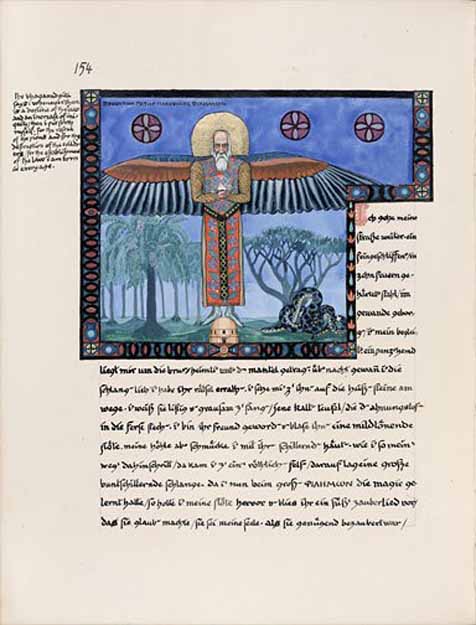 154
The bhagavadgita
says: whenever there
is a decline of the law
and an increase of ini-
quity/then I put forth
myself. for the rescue
of the pious and for the
destruction of the evildo-
ers, for the establishment
of the law I am born
in every age.
Ich gehe meine
straße weiter. ein
feingeschliffen'/in
zehn feuern ge-
härt' stahl/im
gewande gebor-
g'/i mein beglei-
ein panzerhemd
liegt mir um die brust/heimli unt' d mantel getrag'. üb' nacht gewan i die
schlang' lieb/i habe ihr räthsel errath'. i setze mi z ihn' auf die heiß' steine am
wege. i weiß sie listig u grausam z fang'/jene kalt' teufel/die d' ahnungslos'
in die ferse stech'. i bin ihr freund geword' u blase ihn' eine mildtönende
flöte. meine höhle ab' schmücke i mit ihr' schillernd' häut'. wie i so mein'
weg dahinschritt/da kam i z ein' röthlich' fels/darauf lag eine große
buntschillernde schlange. da i nun beim groß' ΦΙΛΗΜΩΝ die magie ge-
lernt hatte/so holte i meine flöte hervor u blies ihr ein süß' zauberlied vor/
daß sie glaub' machte/sie sei meine seele. als sie genügend bezaubert war/